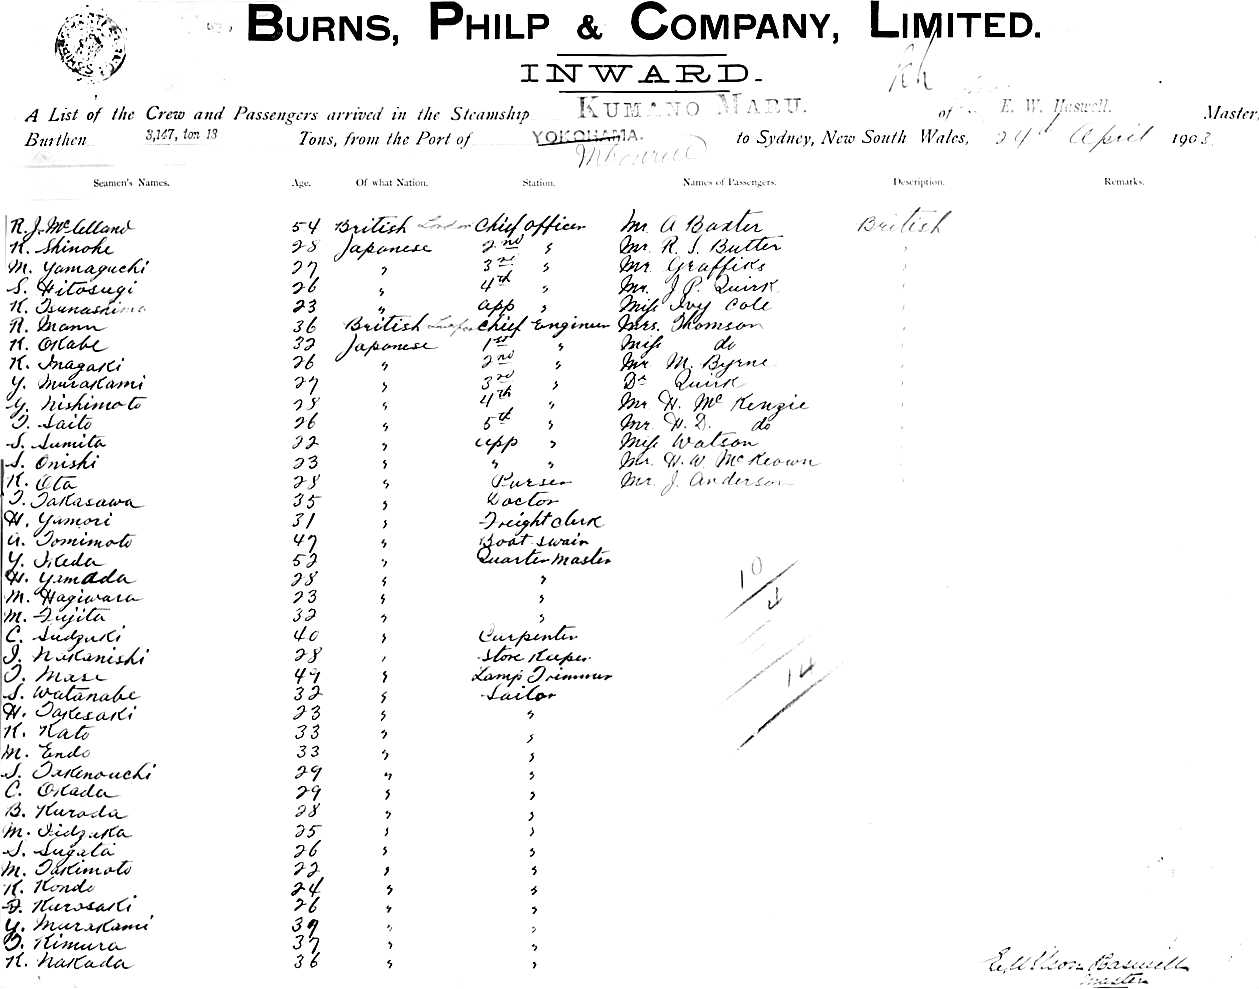 BURNS, PHILP & COMPANY, LIMITED.
INWARD.
A List of the Crew and Passengers arrived in the Steamship KUMANO MARU. of E. W. Haswell. Master,
Burthen 3,147, ton 13 Tons, from the Port of YOKOHAMA. to Sydney, New South Wales, 24th April 1903.
Seamen's Names. Age. Of what Nation. Station. Names of Passengers. Description. Remarks.
R. J. McLelland 54 British London Chief Officer Mr A Baxter British
K. Shinohe 28 Japanese 2nd " Mr. R. S. Butter "
M. Yamaguchi 27 " 3rd " Mr Graffiks "
S. Hitosugi 26 " 4th " Mr. J. P. Quirk "
K. Tsunashima 23 " app " Miss Ivy Cole "
R. Mann 36 British Chief Engineer Mrs. Thomson "
K. Okabe 32 Japanese 1st " Miss do "
K. Inagaki 26 " 2nd " Mr M. Byrne "
Y. Murakami 27 " 3rd " Dr Quirk "
Y. Nishimoto 28 " 4th " Mr H. McKenzie "
T. Saito 26 " 5th " Mr H. D. do "
S. Sumita 22 " app " Miss Watson "
S. Onishi 23 " " " Mr. H. W. McKeown "
K. Ota 28 " Purser Mr. J. Anderson "
T. Takasawa 35 " Doctor
H. Yamori 31 " Freight Clerk
A. Tomimoto 47 " Boat swain
Y. Ikeda 52 " Quarter Master
H. Yamada 28 " "
M. Hagiwara 23 " "
M. Fujita 32 " "
C. Sudzuki 40 " Carpenter
I. Nakanishi 28 " Store Keeper
T. Mase 49 " Lamp Trimmer
S. Watanabe 32 " Sailor
H. Takesaki 23 " "
K. Kato 33 " "
M. Endo 33 " "
S. Takenouchi 29 " "
C. Okada 29 " "
B. Kuroda 28 " "
M. Iidzuka 25 " "
S. Sugata 26 " "
M. Takimoto 22 " "
K. Kondo 24 " "
T. Kurosaki 26 " "
Y. Murakami 39 " "
T. Kimura 37 " "
K. Nakada 36 " "
10
4
14
E. Wilson Haswell
Master